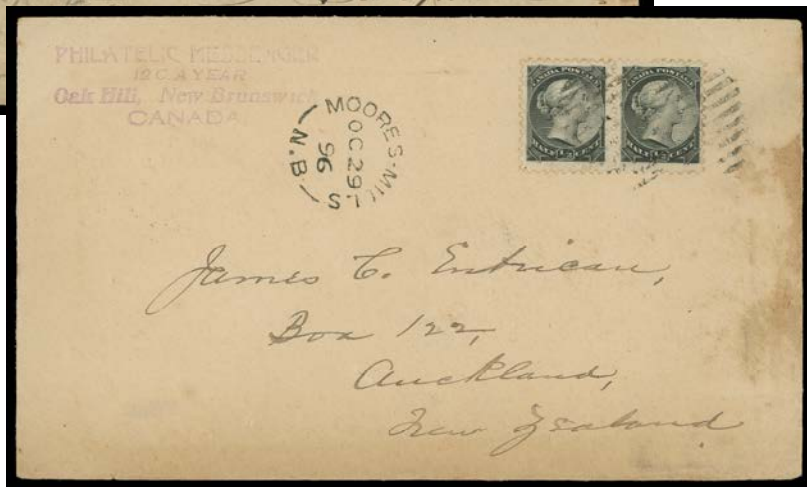 PHILATELIC MESSENGER
12C. A YEAR
Oak Hill, New Brunswick
CANADA
MOORES-MILLS
OC 29
96
N.B.
CANADA POSTAGE
HALF 1/2 CENT
CANADA POSTAGE
HALF 1/2 CENT
James C. Entrican,
Box 122,
Auckland,
New Zealand